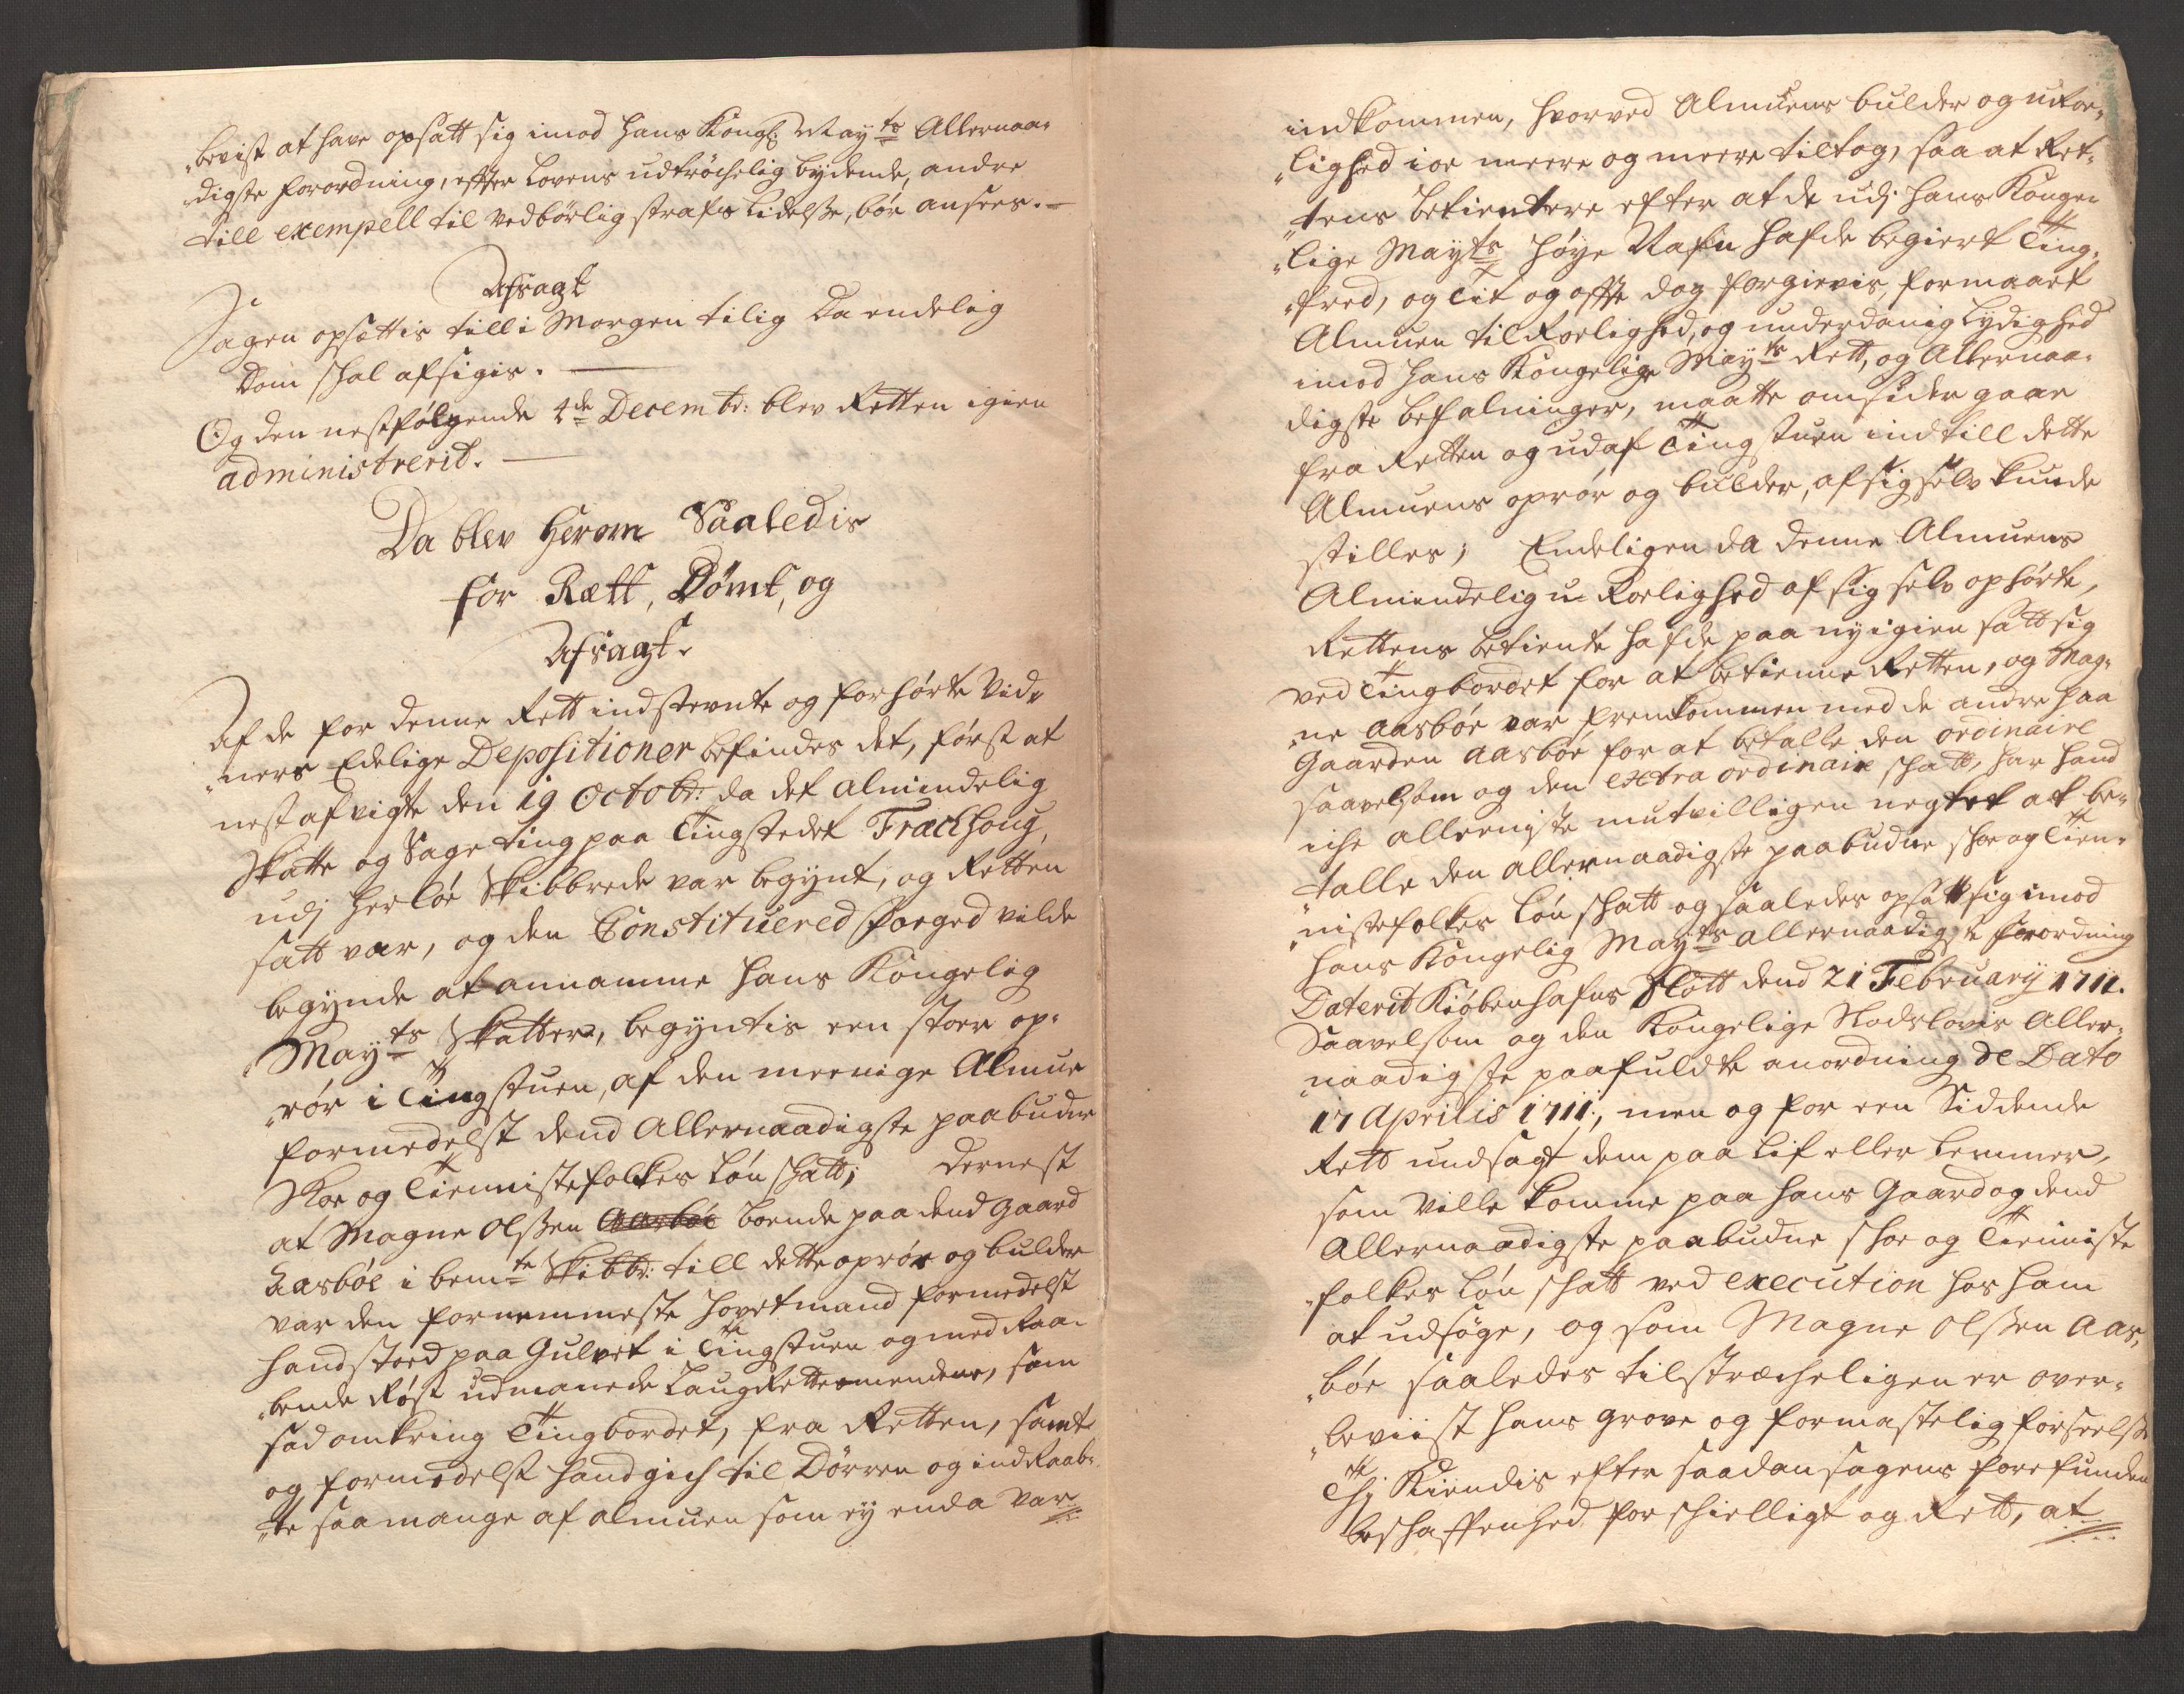 "bevist at have opsatt sig imod hans Kongl: Mayts Allernaa-
digste forordning, efter Lovens udtröchelig bydende, andre
till exempell til vedbörlig strafs Lidelsse, bör ansees. —
Afsagt
Sagen opsettis till i Morgen tilig Da endelig
Dom schal afsigis. —
Og den nestfölgende 4de Decembr: blev Retten igien
administrerit. —
Da blev herom Saaledis
for Rætt, Dömt, og
Afsagt.
Af de for denne Rett indstevnte og forhörte Vid-
"ners Edelige Depositioner befindes det, först at
nest afvigte den 19 Octobr: da det almindelig
Skatte og Sage ting paa Tingstedet Fræchhoug,
udj Herlöe Skibbrede var begynt, og Retten
satt var, og den Constituered foeged vilde
begynde at annamme hans Kongelig
Mayts Skatter, begyntis een stoer op-
"rör i Tingstuen, af den meenige Almue
formedelst dend Allernaadigste paabudne
Skoe og Tiennistefolkes Lön schatt; dernest
at Magne Olssen Aasböe boende paa dend gaard
Aasböe i bemte Skibbr: till dette oprör og bulder
var den fornemmeste hovetmand formedelst
hand stoed paa Gulvet i Tingstuen og med Raa-
"bende Röst udmanede LaugRettesmendene, som
sad omkring Tingbordet, fra Retten, samt
og formedelst hand gich til Dörren og ind Raab-
"te saa mange af almuen som ey enda var
indkommen, hvorved Almuens bulder og uroe-
"lighed ioe meere og meere tiltog, saa at Ret-
"tens betientere efter at de udj hans Konge-
"lige Mayts höye Nafn hafde begiert Ting-
"fred, og tit og offte dog forgievis, formaant
Almuen til Roelighed, og underdanig lydighed
imod hans Kongelige Mayts Rett, og Allernaa-
digste befalninger, maatte omsider gaae
fra Retten og ud af Tingstuen indtill dette
Almuens oprör og bulder, af sig selv kunde
stilles; Endeligen da denne Almuens
Almindelig u-Roelighed af sig selv ophörte,
Rettens betiente hafde paa ny igien satt sig
ved Tingbordet for at betienne Retten, og Mag-
"ne Aasböe var fremkommen med de andre paa
Gaarden Aasböe for at betalle den ordinaire
saavelsom og den extra ordinaire schatt, har hand
iche alleeniste mutvilligen negtet at be-
"talle den allernaadigste paabudne schoe og Tien-
"nistefolkes Lön schatt og saaledes opsatt sig imod
hans Kongelig Mayts allernaadigste forordning
Daterit Kiöbenhafns Slott dend 21 February 1711.
Saavelsom og den Kongelige Slodslovis Aller-
"naadigste paafuldte anordning de Dato
17 Aprilis 1711:, men og for een Siddende
Rett undsagt dem paa Lif eller Lemmer,
som ville komme paa hans Gaard og dend
Allernaadigste paabudne schoe og Tienniste
"folkes Lön schatt ved execution hos ham
at udsöge, og som Magne Olssen Aas-
"böe saaledes tilstræcheligen er over-
"beviist hans grove og formastelig forseelsse
Thj Kiendis efter saadan sagens forefunden
beschaffenhed for schielligt og Rett, at